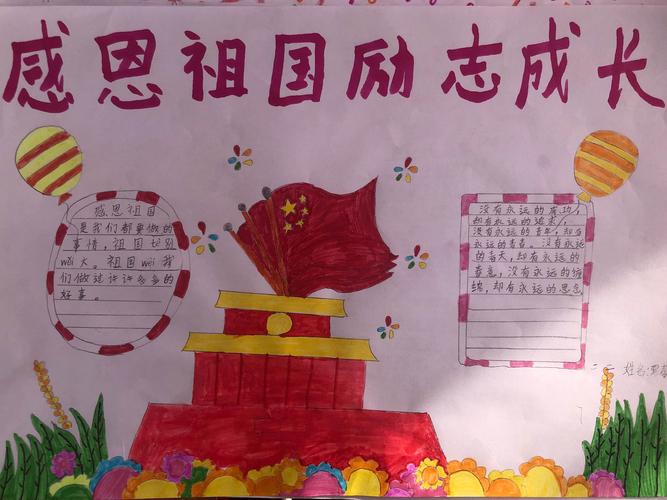 感恩祖国励志成长
感恩祖国
是我们都要做的
事情，祖国
wěi大。祖国wèi我
们做这许许多多的
好事。
没有永远的成功，
却有永远的追求，
没有永远的青年，却有
永远的青春。没有永远
的春天，却有永远的
春意，没有永远的缠
绵，却有永远的思念
姓名：